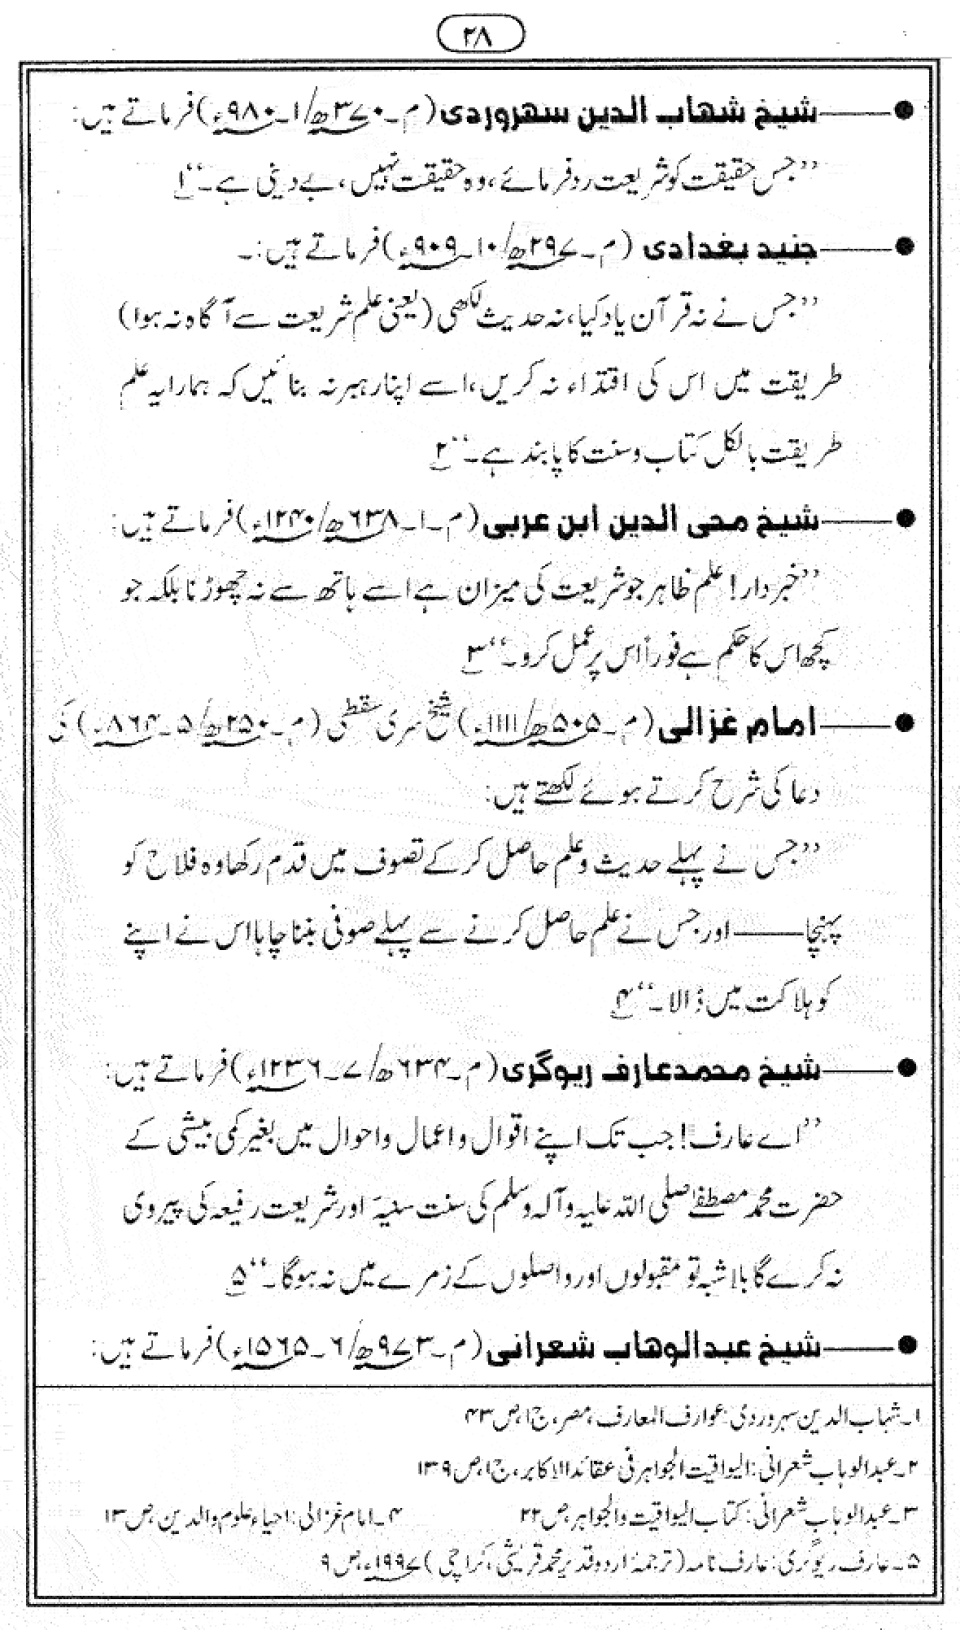 ۲۸
●——شیخ شہاب الدین سہروردی (م۔۳۷۰ھ/۱۔۹۸۰ء) فرماتے ہیں:
”جس حقیقت کو شریعت رد فرمائے، وہ حقیقت نہیں، بے دینی ہے۔“۱
●——جنید بغدادی (م۔۲۹۷ھ/۱۰۔۹۰۹ء) فرماتے ہیں:۔
”جس نے نہ قرآن یاد کیا، نہ حدیث لکھی (یعنی علم شریعت سے آگاہ نہ ہوا)
طریقت میں اس کی اقتداء نہ کریں، اسے اپنا رہبر نہ بنائیں کہ ہمارا یہ علم
طریقت بالکل کتاب و سنت کا پابند ہے۔“۲
●——شیخ محی الدین ابن عربی (م۔۱۔۶۳۸ھ/۱۲۴۰ء) فرماتے ہیں:
”خبردار! علم ظاہر جو شریعت کی میزان ہے اسے ہاتھ سے نہ چھوڑنا بلکہ جو
کچھ اس کا حکم ہے فوراً اس پر عمل کرو۔“۳
●——امام غزالی (م۔۵۰۵ھ/۱۱۱۱ء) شیخ سری سقطی (م۔۲۵۰ھ/۵۔۸۶۴ء) کی
دعا کی شرح کرتے ہوئے لکھتے ہیں:
”جس نے پہلے حدیث و علم حاصل کر کے تصوف میں قدم رکھا وہ فلاح کو
پہنچا——اور جس نے علم حاصل کرنے سے پہلے صوفی بننا چاہا اس نے اپنے
کو ہلاکت میں ڈالا۔“۴
●——شیخ محمد عارف ریوگری (م۔۶۳۴ھ/۷۔۱۲۳۶ء) فرماتے ہیں:
”اے عارف! جب تک اپنے اقوال و اعمال و احوال میں بغیر کمی بیشی کے
حضرت محمد مصطفےٰ صلی اللہ علیہ وآلہ وسلم کی سنت سنیہ اور شریعت رفیعہ کی پیروی
نہ کرے گا بلاشبہ تو مقبولوں اور واصلوں کے زمرے میں نہ ہوگا۔“۵
●——شیخ عبدالوہاب شعرانی (م۔۹۷۳ھ/۶۔۱۵۶۵ء) فرماتے ہیں:
۱۔شہاب الدین سہروردی: عوارف المعارف، مصر، ج۱، ص۴۳
۲۔عبدالوہاب شعرانی: الیواقیت الجواہر فی عقائد الاکابر، ج۱، ص۱۳۹
۳۔عبدالوہاب شعرانی: کتاب الیواقیت والجواہر ص۲۲ ۴۔امام غزالی: احیاء علوم والدین، ص۱۳
۵۔عارف ریوگری: عارف نامہ (ترجمۂ اردو قدیر محمد قریشی، کراچی) ۱۹۹۷ء، ص۹